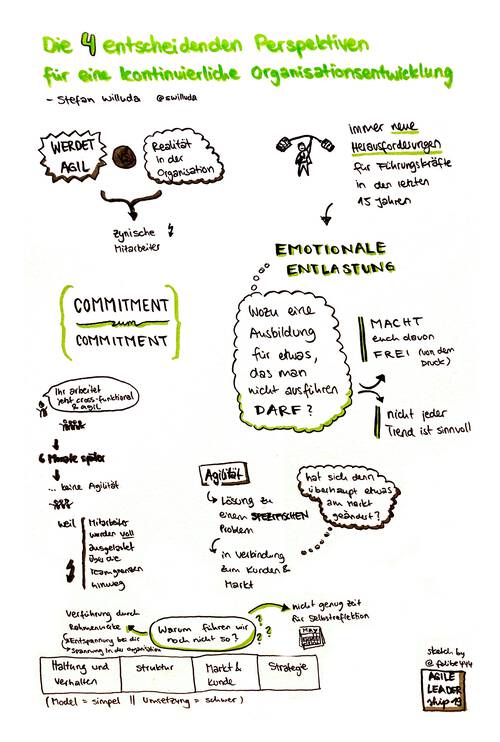 Die 4 entscheidenden Perspektiven
für eine kontinuierliche Organisationsentwicklung
- Stefan Willuda @swilluda
WERDET
AGIL
Realität
in der
Organisation
Zynische
Mitarbeiter
Immer neue
Herausforderungen
für Führungskräfte
in den letzten
15 Jahren
EMOTIONALE
ENTLASTUNG
COMMITMENT
zum
COMMITMENT
Wozu eine
Ausbildung
für etwas,
das man
nicht ausführen
DARF?
MACHT
euch davon
FREI (von dem
Druck)
nicht jeder
Trend ist sinnvoll
Ihr arbeitet
jetzt cross-functional
& agil
6 Monate später
... keine Agilität
weil
Mitarbeiter
werden voll
ausgelastet
über die
Teamgrenzen
hinweg
Agilität
Lösung zu
einem SPEZIFISCHEN
Problem
in Verbindung
zum Kunden &
Markt
hat sich denn
überhaupt etwas
am Markt
geändert?
Verführung durch
Rahmenwerke
Entspannung bei dir
Spannung in der Organisation
Warum führen wir
noch nicht so?
? ? ? ?
nicht genug Zeit
für Selbstreflektion
MAY
Haltung und
Verhalten
Struktur
Markt &
Kunde
Strategie
(Model = simpel || Umsetzung = schwer)
sketch by
AGILE
LEADER
ship 19